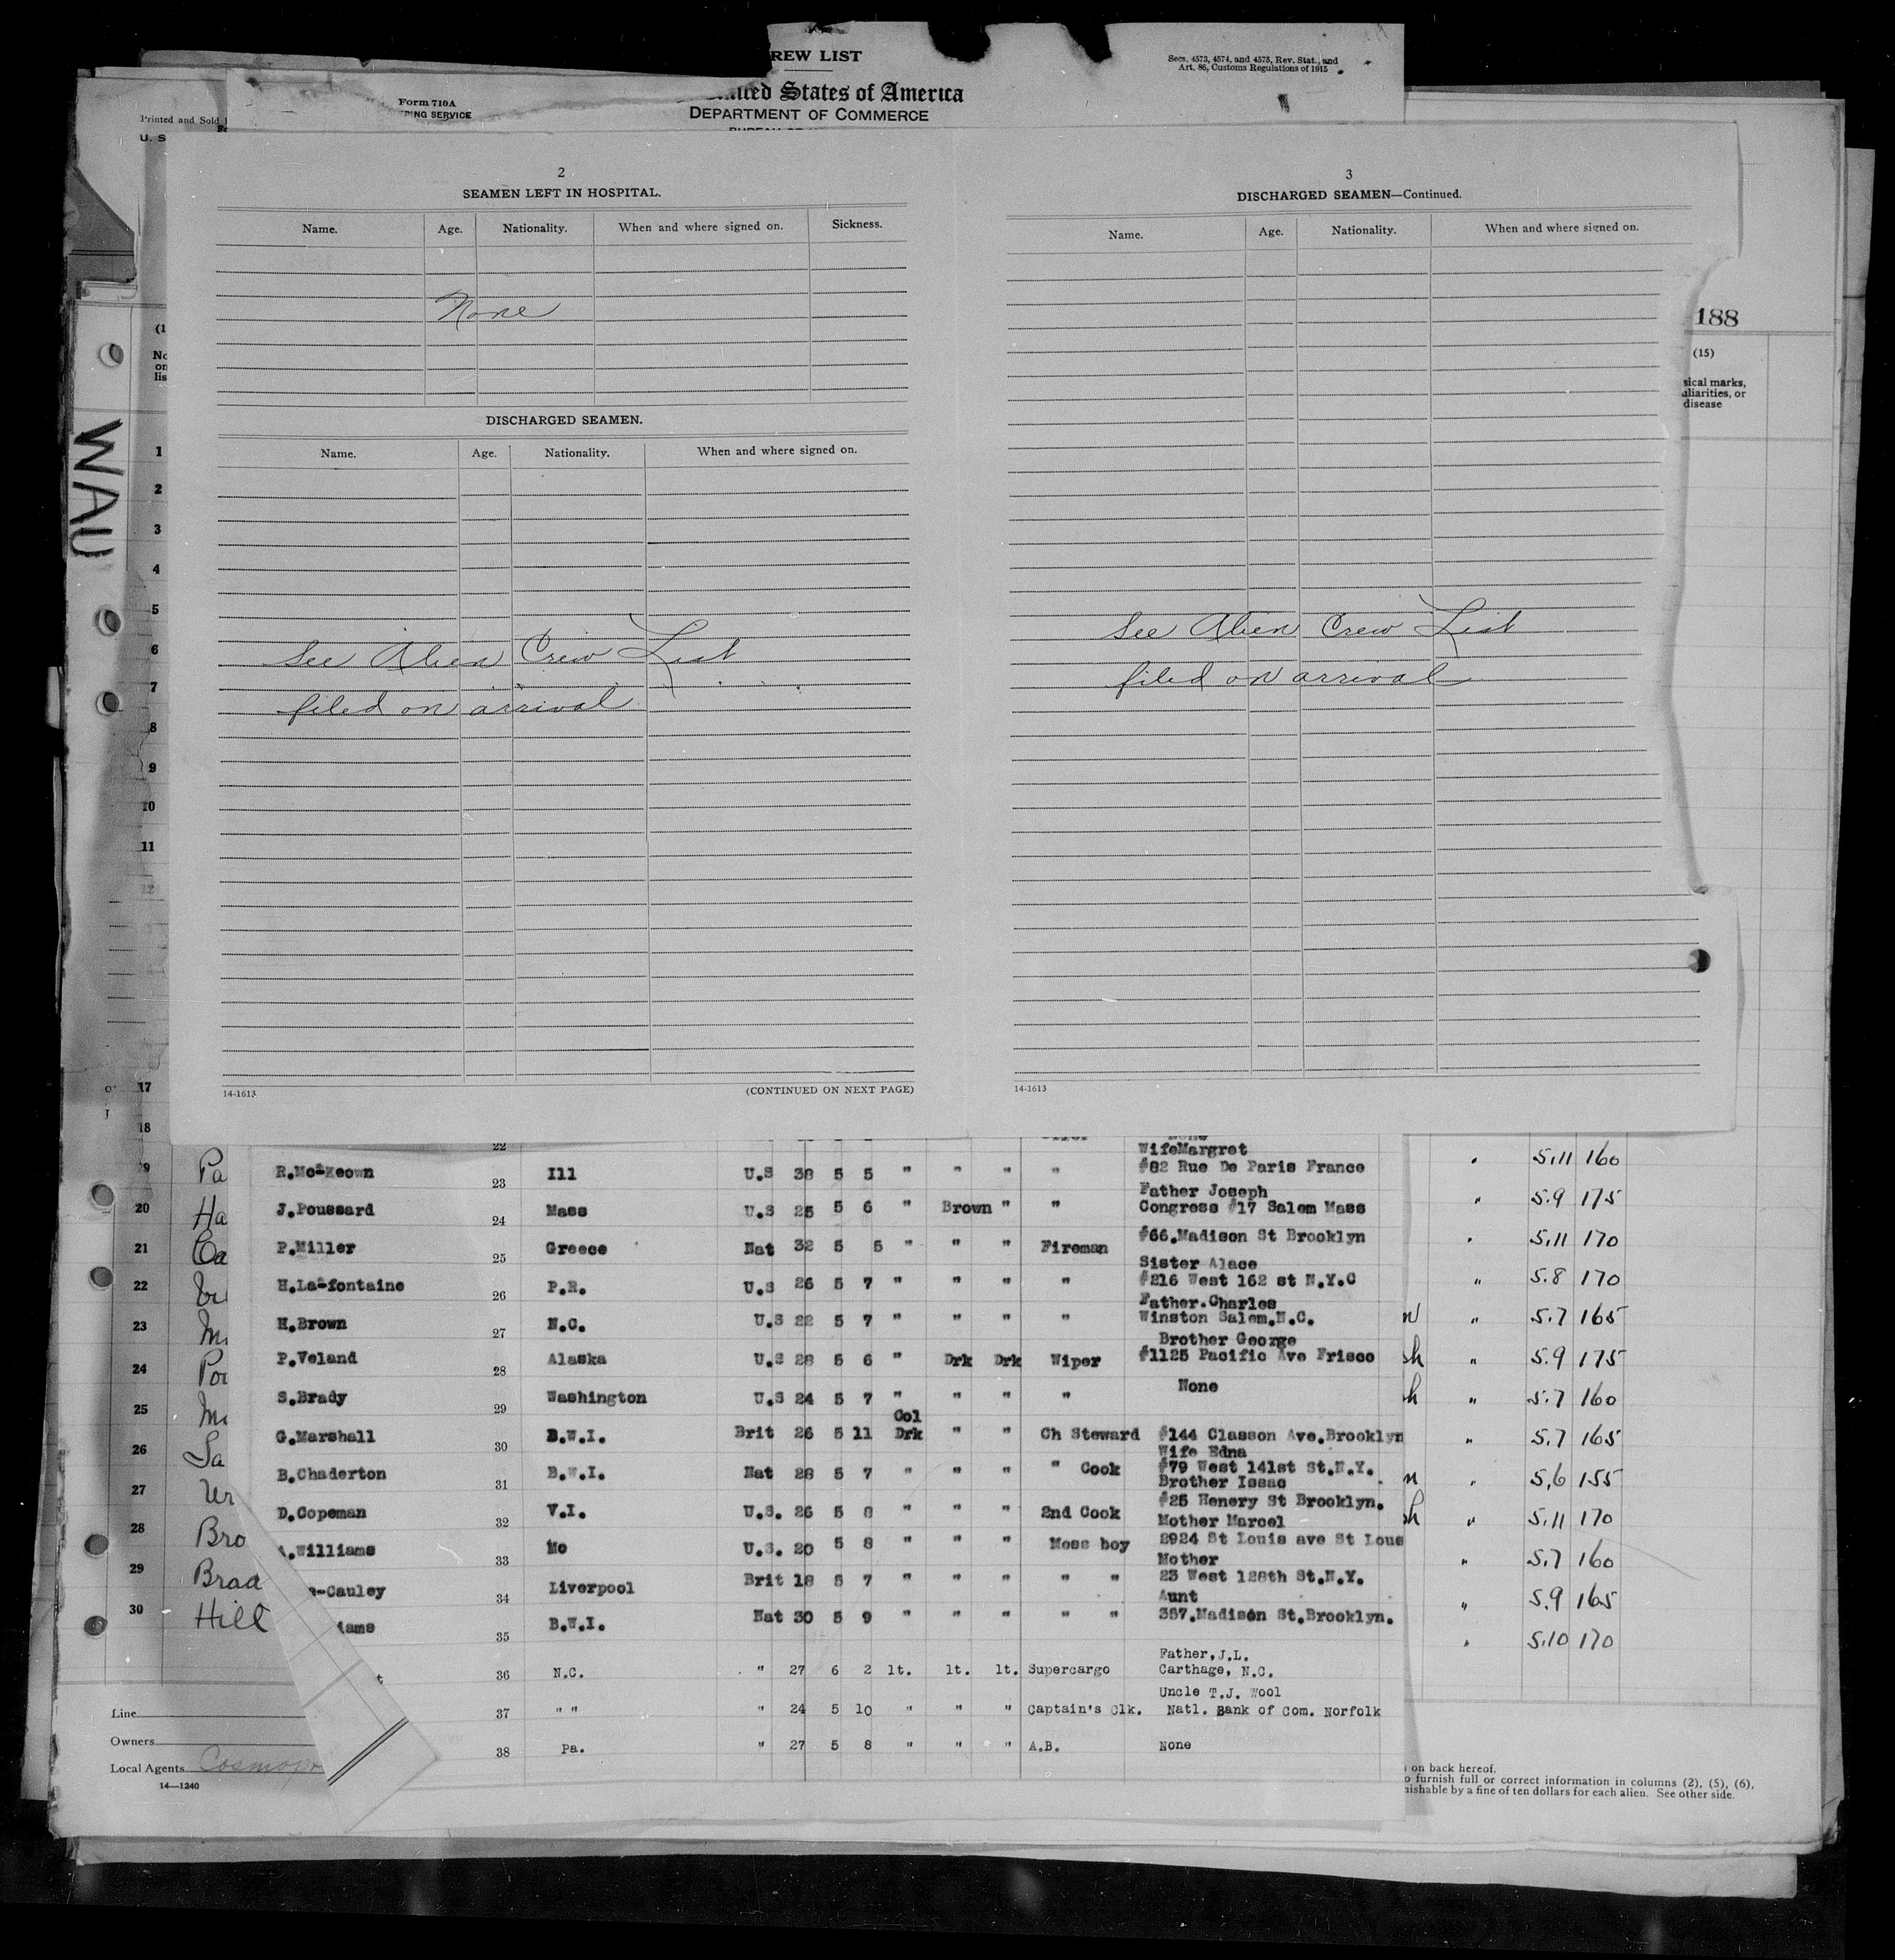 REW LIST
Secs. 4573, 4574, and 4575, Rev. Stat., and
Art. 86, Customs Regulations of 1915
States of America
Form 710A
DEPARTMENT OF COMMERCE
Printed and Sold
U. S
2
SEAMEN LEFT IN HOSPITAL.
Name. Age. Nationality. When and where signed on. Sickness.
None
DISCHARGED SEAMEN.
Name. Age. Nationality. When and where signed on.
See Alien Crew List
filed on arrival
14-1613 (CONTINUED ON NEXT PAGE)
3
DISCHARGED SEAMEN—Continued.
Name. Age. Nationality. When and where signed on.
See Alien Crew List
filed on arrival
14-1613
188
(15)
sical marks,
uliarities, or
disease
(1
No
on
lis
WAU
1
2
3
4
5
6
7
8
9
10
11
17
18
22
WifeMargret
R.Mc-Keown 23 Ill U.S 38 5 5 " " " " #82 Rue De Paris France
Father Joseph
J.Poussard 24 Mass U.S 25 5 6 " Brown " " Congress #17 Salem Mass
P.Miller 25 Greece Nat 32 5 5 " " " Fireman #66.Madison St Brooklyn
Sister Alace
H.La-fontaine 26 P.R. U.S 26 5 7 " " " " #216 West 162 st N.Y.C
Father.Charles
H.Brown 27 N.C. U.S 22 5 7 " " " " Winston Salem.N.C.
Brother George
P.Veland 28 Alaska U.S 28 5 6 " Drk Drk Wiper #1125 Pacific Ave Frisco
S.Brady 29 Washington U.S 24 5 7 " " " " None
Col
G.Marshall 30 B.W.I. Brit 26 5 11 Drk " " Ch Steward #144 Classon Ave.Brooklyn
Wife Edna
B.Chaderton 31 B.W.I. Nat 28 5 7 " " " " Cook #79 West 141st St.N.Y.
Brother Issac
D.Copeman 32 V.I. U.S. 26 5 8 " " " 2nd Cook #25 Henery St Brooklyn.
Mother Marcel
.Williams 33 Mo U.S. 20 5 8 " " " Mess boy 2924 St Louis ave St Loue
Mother
-Cauley 34 Liverpool Brit 18 5 7 " " " " " 23 West 128th St.N.Y.
Aunt
iams 35 B.W.I. Nat 30 5 9 " " " " " 357.Madison St.Brooklyn.
Father, J.L.
t 36 N.C. " 27 6 2 lt. lt. lt. Supercargo Carthage, N.C.
Uncle T.J. Wool
37 " " " 24 5 10 " " " Captain's Clk. Natl. Bank of Com. Norfolk
38 Pa. " 27 5 8 " " " A.B. None
19 Pa
20 Ha
21 Ca
22
23
24
25
26 Sa
27
28 Bro
29 Brad
30 Hill
" 5.11 160
" 5.9 175
" 5.11 170
" 5.8 170
" 5.7 165
" 5.9 175
" 5.7 160
" 5.7 165
" 5.6 155
" 5.11 170
" 5.7 160
" 5.9 165
" 5.10 170
Line
Owners
Local Agents Cosmopo
14—1240
on back hereof.
o furnish full or correct information in columns (2), (5), (6),
nishable by a fine of ten dollars for each alien. See other side.